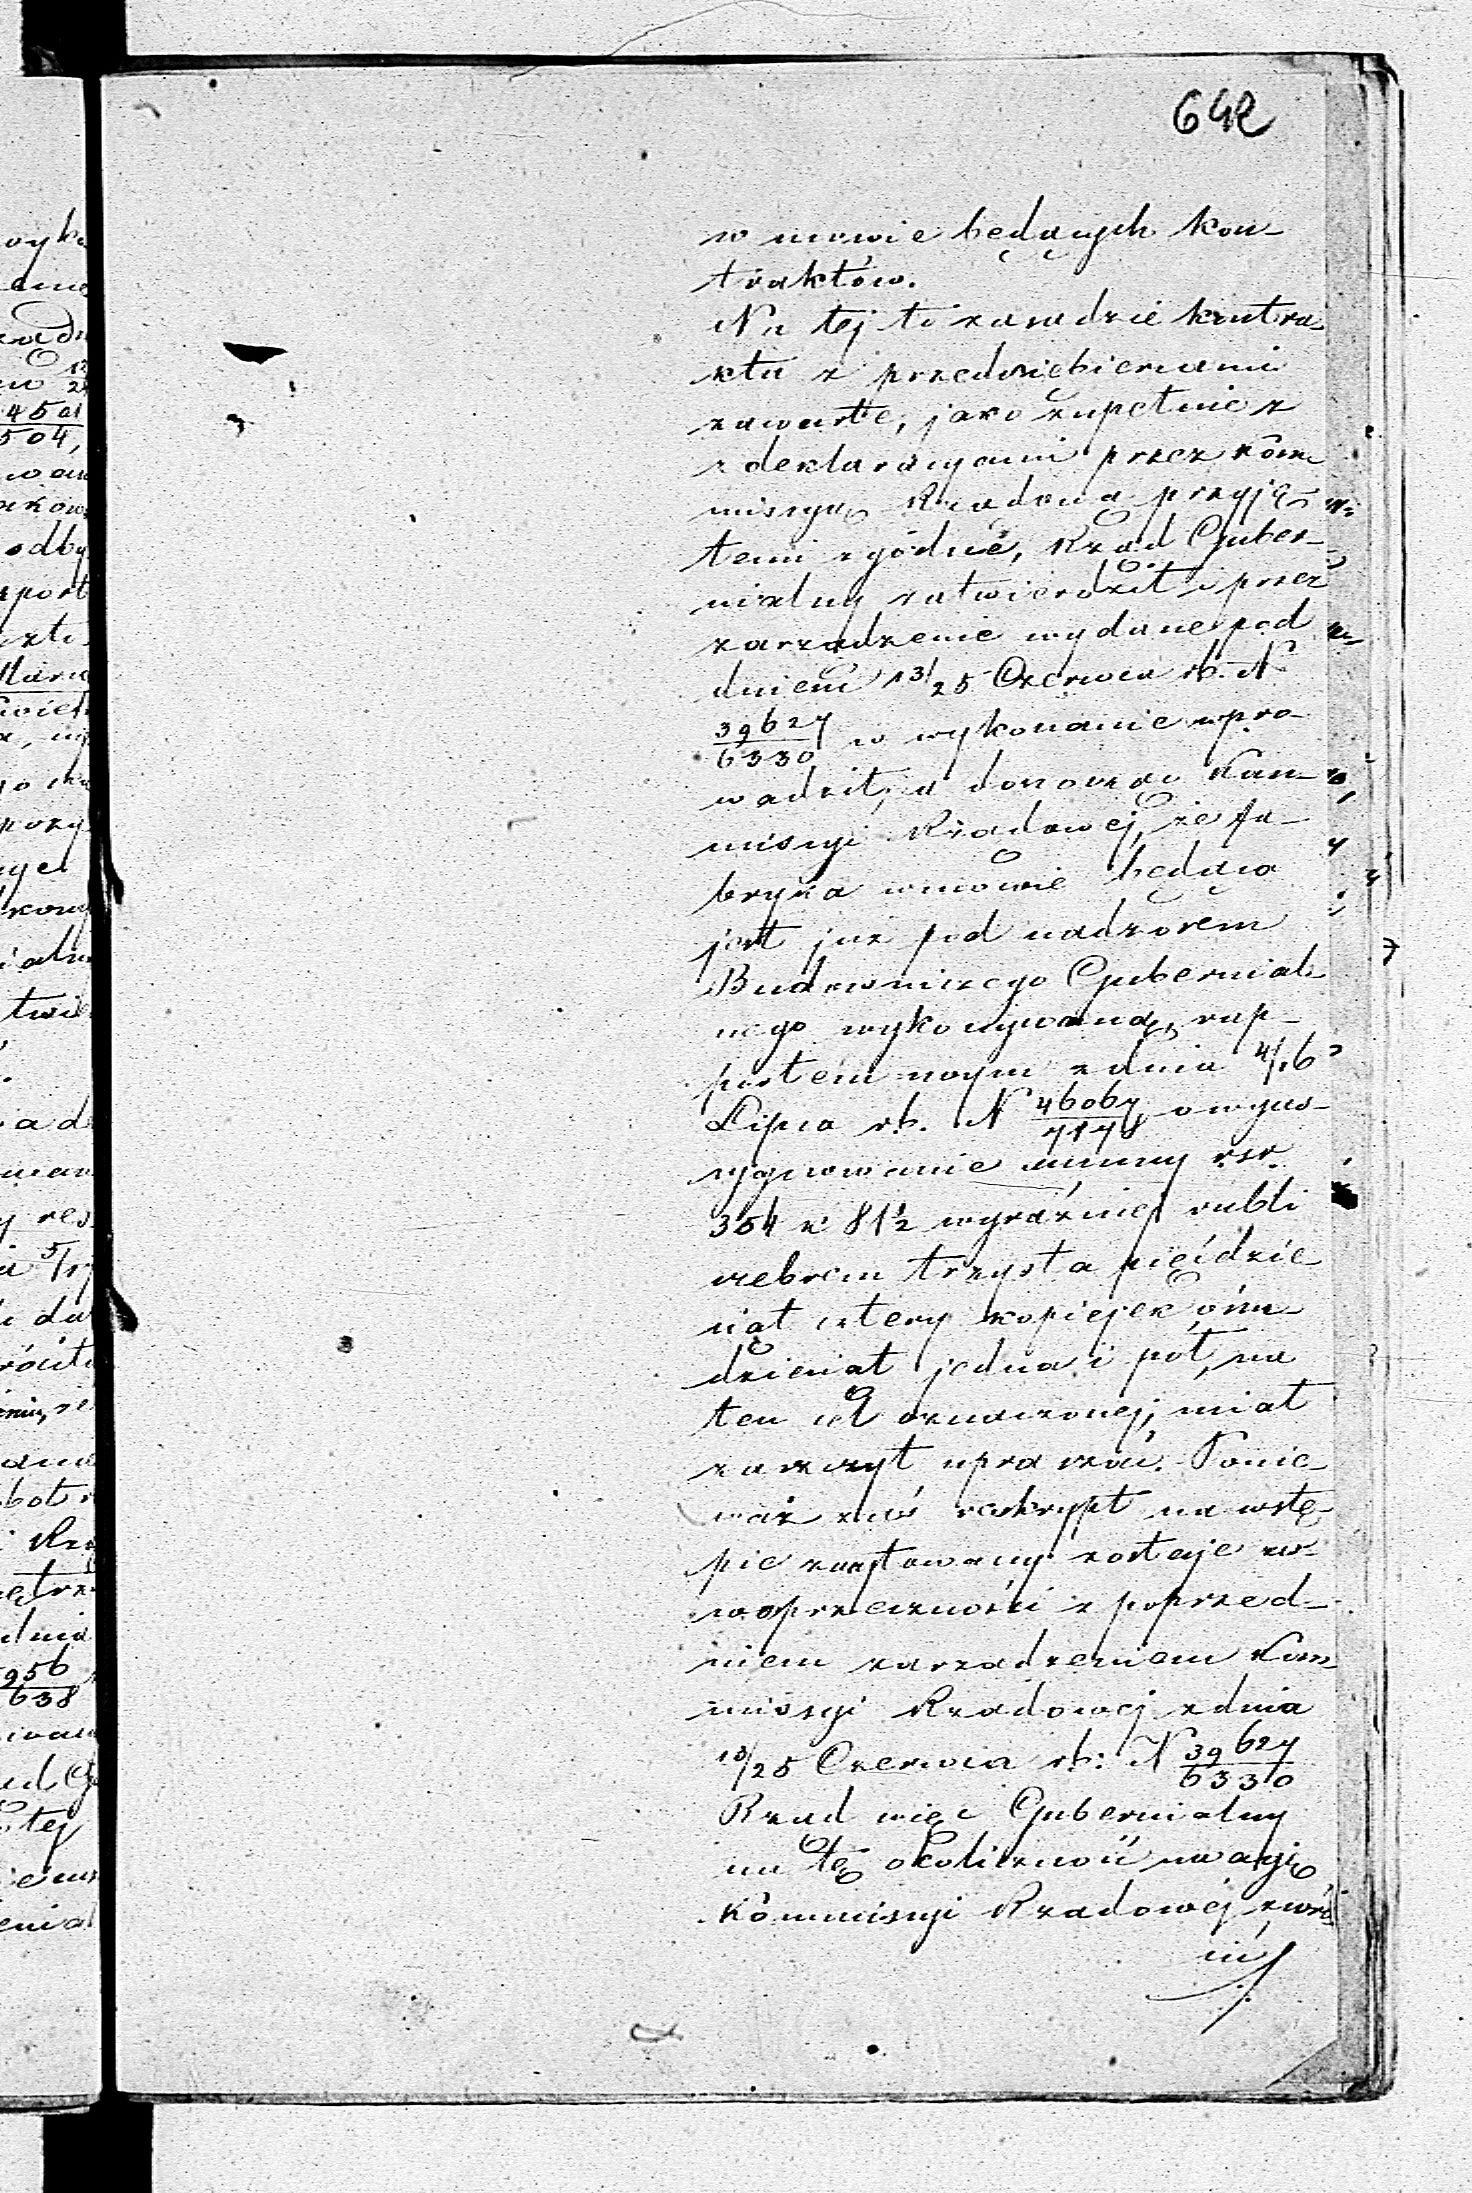 642
w mowie będących kon-
traktów.
Na tej to zasadzie kontra-
kta z przedsiębiercami
zawarte, jako zupełnie z
deklaracyami przez Kom-
missyą Rządową przyję-
temi zgodne, Rząd Guber-
nialny zatwierdził i przez
zarządzenie wydane pod
dniem 13/25 Czerwca rb. N
39627/6330 w wykonanie wpro-
wadził, a donosząc Kom-
missyi Rządowej, że fa-
bryka wmowie będąca
jest już pod nadzorem
Budowniczego Gubernial-
nego wykonywaną, rap-
portem swym z dnia 4/16
Lipca rb. N 46067/7178 o wyas-
sygnowanie summy rsr.
354 k 81½ wyraźniej rubli
srebrem trzysta pięćdzie-
siąt cztery kopiejek ośm-
dziesiąt jedna i pół, na
ten cel oznaczonej, miał
zaszczyt upraszać. Ponie-
waż zaś reskrypt na wstę-
pie zacytowany zostaje w
sprzeczności z poprzed-
niem zarządzeniem Kom-
missyi Rządowej z dnia
13/25 Czerwca rb: N 39627/6330
Rząd więc Gubernialny
na tę okoliczność uwagę
Kommissyi Rządowej zwró-
cić